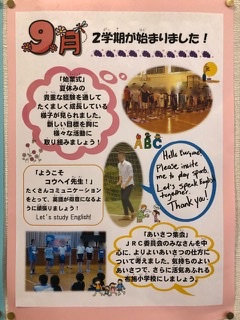 9月
2学期が始まりました!
「始業式」
夏休みの
貴重な経験を通して
たくましく成長している
様子が見られました。
新しい目標を胸に
様々な活動に
取り組みましょう!
ABC
Hello Everyone.
Please invite
me to play sports.
Let's speak English
together.
Thank you!
「ようこそ
コウヘイ先生!」
たくさんコミュニケーション
をとって、英語が得意になる
ように頑張りましょう!
Let's study English!
「あいさつ集会」
JRC委員会のみなさんを中
心に、よりよいあいさつの仕方に
ついて考えました。気持ちのよい
あいさつで、さらに活気あふれる
布施小学校にしましょう。